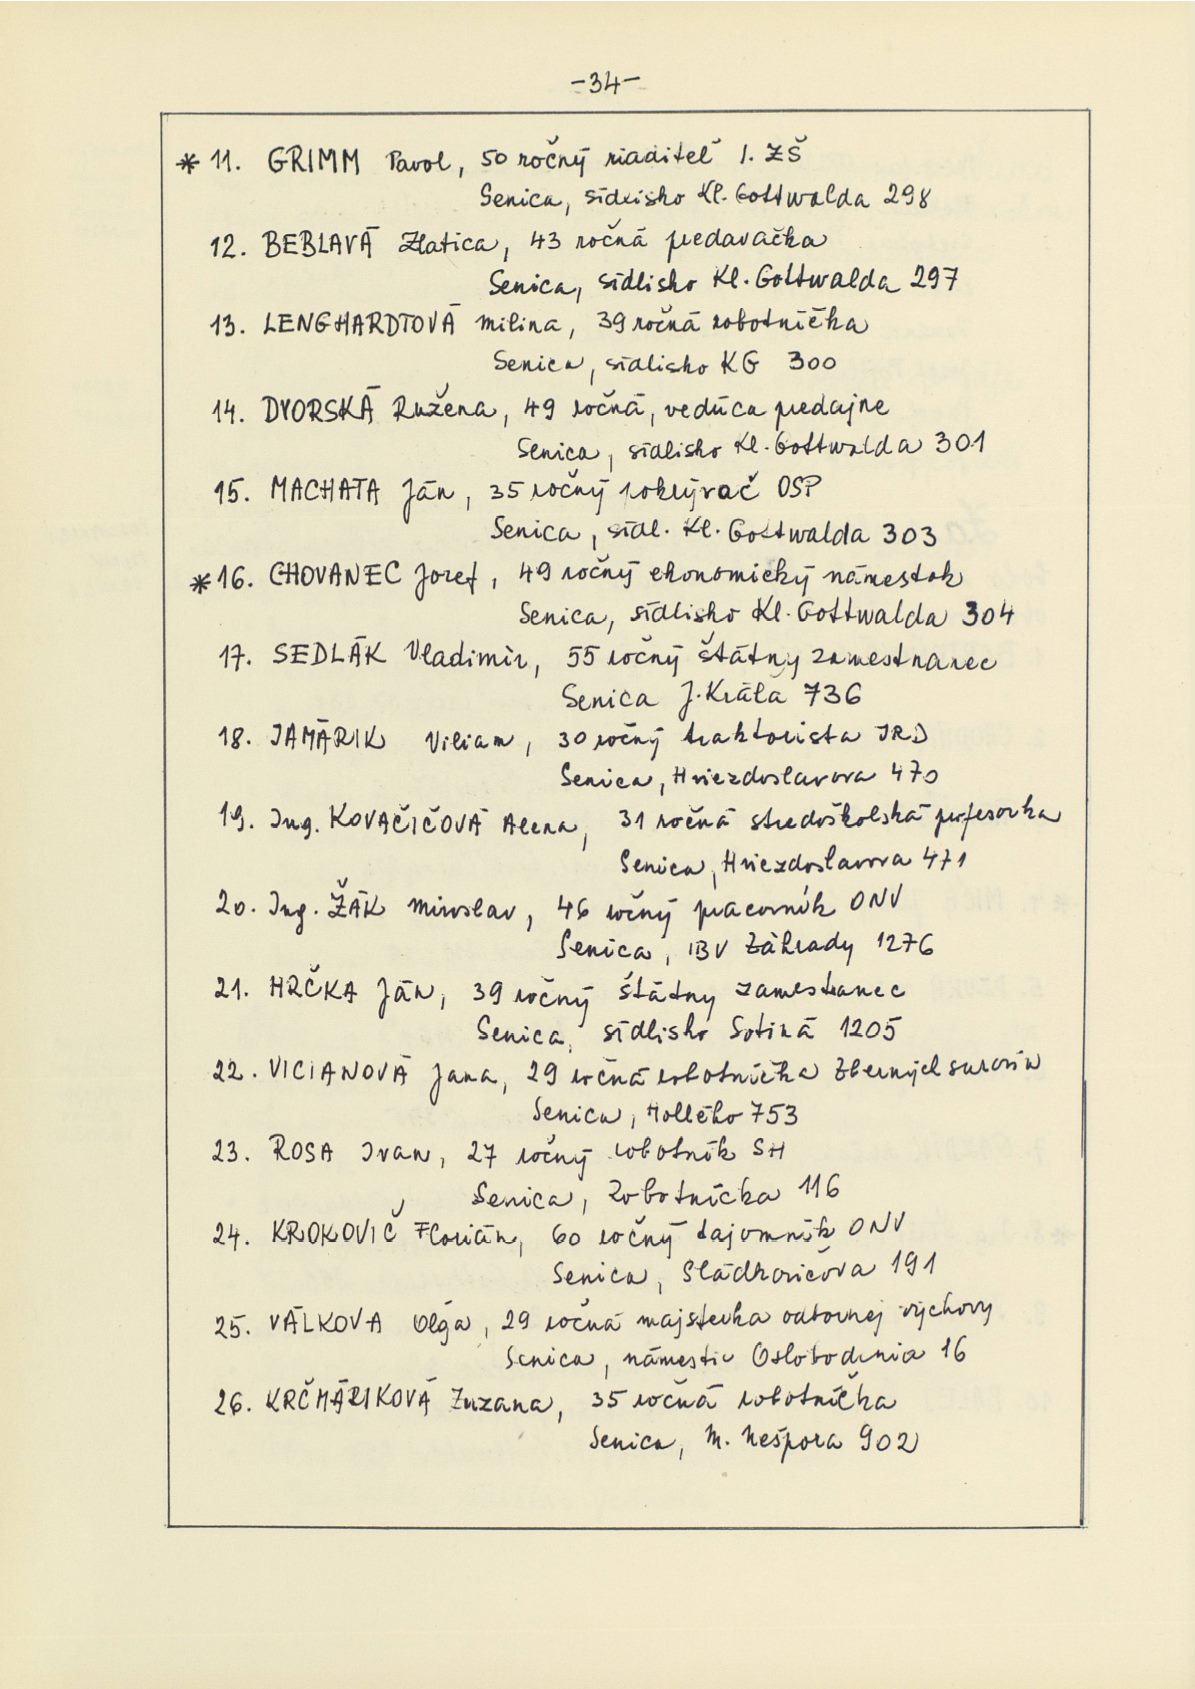 -34-
* 11. GRIMM Pavol, 50 ročný riaditeľ I. ZŠ
Senica, sídlisko Kl. Gottwalda 298
12. BEBLAVÁ Zlatica, 43 ročná predavačka
Senica, sídlisko Kl. Gottwalda 297
13. LENGHARDTOVÁ Milina, 39 ročná robotníčka
Senica, sídlisko KG 300
14. DVORSKÁ Ružena, 49 ročná, vedúca predajne
Senica, sídlisko Kl. Gottwalda 301
15. MACHATA Ján, 35 ročný pokrývač OSP
Senica, sídl. Kl. Gottwalda 303
* 16. CHOVANEC Jozef, 49 ročný ekonomický námestok
Senica, sídlisko Kl. Gottwalda 304
17. SEDLÁK Vladimír, 55 ročný štátny zamestnanec
Senica J. Kráľa 736
18. JAMÁRIK Viliam, 30 ročný traktorista JRD
Senica, Hviezdoslavova 470
19. Ing. KOVAČIČOVÁ Alena, 31 ročná stredoškolská profesorka
Senica, Hviezdoslavova 471
20. Ing. ŽÁK Miroslav, 46 ročný pracovník ONV
Senica, IBV Záhrady 1276
21. HRČKA Ján, 39 ročný štátny zamestnanec
Senica, sídlisko Sotiná 1205
22. VICIANOVÁ Jana, 29 ročná robotníčka Zberných surovín
Senica, Hollého 753
23. ROSA Ivan, 27 ročný robotník SH
Senica, Robotnícka 116
24. KROKOVIČ Florián, 60 ročný tajomník ONV
Senica, Sládkovičova 191
25. VÁLKOVA Oľga, 29 ročná majsterka odbornej výchovy
Senica, námestie Oslobodenia 16
26. KRČMÁRIKOVÁ Zuzana, 35 ročná robotníčka
Senica, M. Nešpora 902